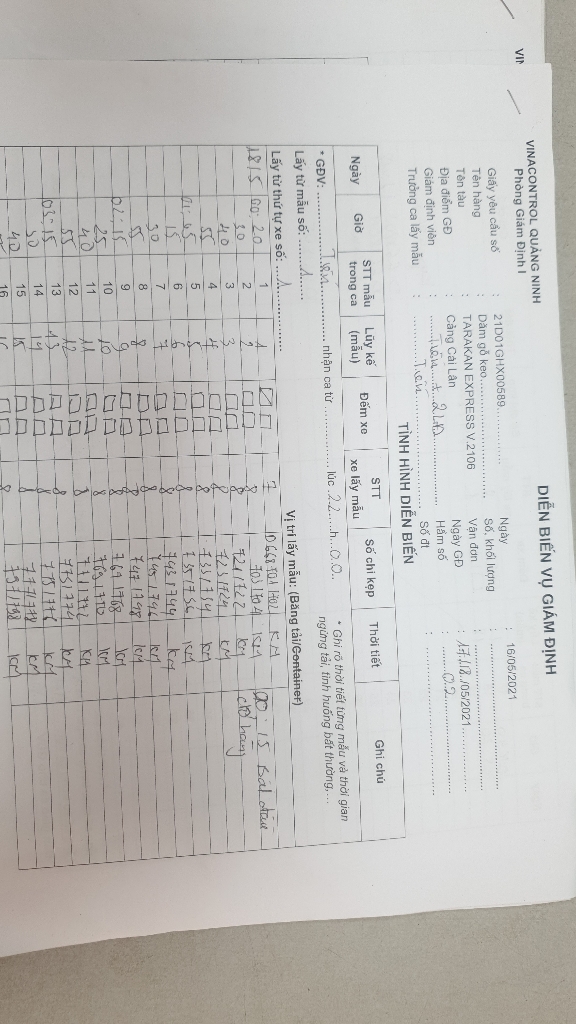 VINACONTROL QUẢNG NINH
Phòng Giám Định I
DIỄN BIẾN VỤ GIÁM ĐỊNH
Giấy yêu cầu số : 21D01GHX00589
Ngày : 16/05/2021
Tên hàng : Dăm gỗ keo
Số, khối lượng :
Tên tàu : TARAKAN EXPRESS V.2106
Vận đơn :
Địa điểm GĐ : Cảng Cái Lân
Ngày GĐ : 17/18/05/2021
Giám định viên : Tiến + 2LĐ
Hầm số : 02
Trưởng ca lấy mẫu : Tiến
Số đt :
TÌNH HÌNH DIỄN BIẾN
Ngày Giờ STT mẫu trong ca Lũy kế (mẫu) Đếm xe STT xe lấy mẫu Số chì kẹp Thời tiết Ghi chú
* GĐV: Tiến nhận ca từ lúc 22 h 00
* Ghi rõ thời tiết từng mẫu và thời gian
ngừng tải, tình huống bất thường,...
Lấy từ mẫu số: 1
Lấy từ thứ tự xe số: 1
Vị trí lấy mẫu: (Băng tải/Container)
18/5 00:20 1 1 7 KM 00:15 Bắt đầu
30 2 2 8 721/722 KM
40 3 3 8 723/724 KM
55 4 4 8 KM
01:05 5 5 8 KM
15 6 6 8 743/744 KM
30 7 7 8 745/746 KM
55 8 8 8 747/748 KM
02:15 9 9 8 767/768 KM
25 10 10 8 769/770 KM
40 11 11 8 771/772 KM
55 12 12 8 KM
03:15 13 13 8 KM
30 14 14 8 777/778 KM
40 15 15 8 797/798 KM
16